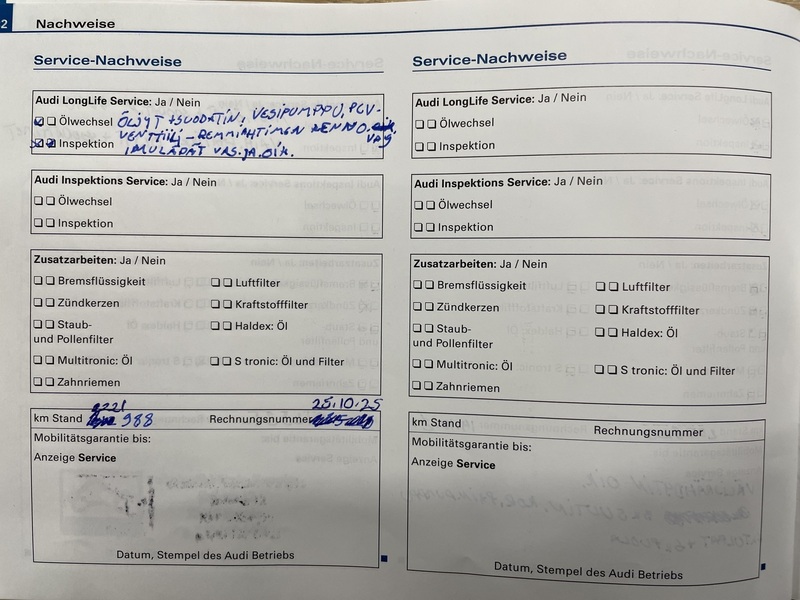 2 Nachweise
Service-Nachweise
Audi LongLife Service: Ja / Nein
Ölwechsel ÖLJYT + SUODATIN, VESIPUMPPU, PCV-
VENTTIILI - REMMIHTIMEN
Inspektion IMULÄPÄT VAS. JA. OIK.
Audi Inspektions Service: Ja / Nein
Ölwechsel
Inspektion
Zusatzarbeiten: Ja / Nein
Bremsflüssigkeit Luftfilter
Zündkerzen Kraftstofffilter
Staub- Haldex: Öl
und Pollenfilter
Multitronic: Öl S tronic: Öl und Filter
Zahnriemen
25.10.25
km Stand 988 Rechnungsnummer
Mobilitätsgarantie bis:
Anzeige Service
Datum, Stempel des Audi Betriebs
Service-Nachweise
Audi LongLife Service: Ja / Nein
Ölwechsel
Inspektion
Audi Inspektions Service: Ja / Nein
Ölwechsel
Inspektion
Zusatzarbeiten: Ja / Nein
Bremsflüssigkeit Luftfilter
Zündkerzen Kraftstofffilter
Staub- Haldex: Öl
und Pollenfilter
Multitronic: Öl S tronic: Öl und Filter
Zahnriemen
km Stand Rechnungsnummer
Mobilitätsgarantie bis:
Anzeige Service
Datum, Stempel des Audi Betriebs